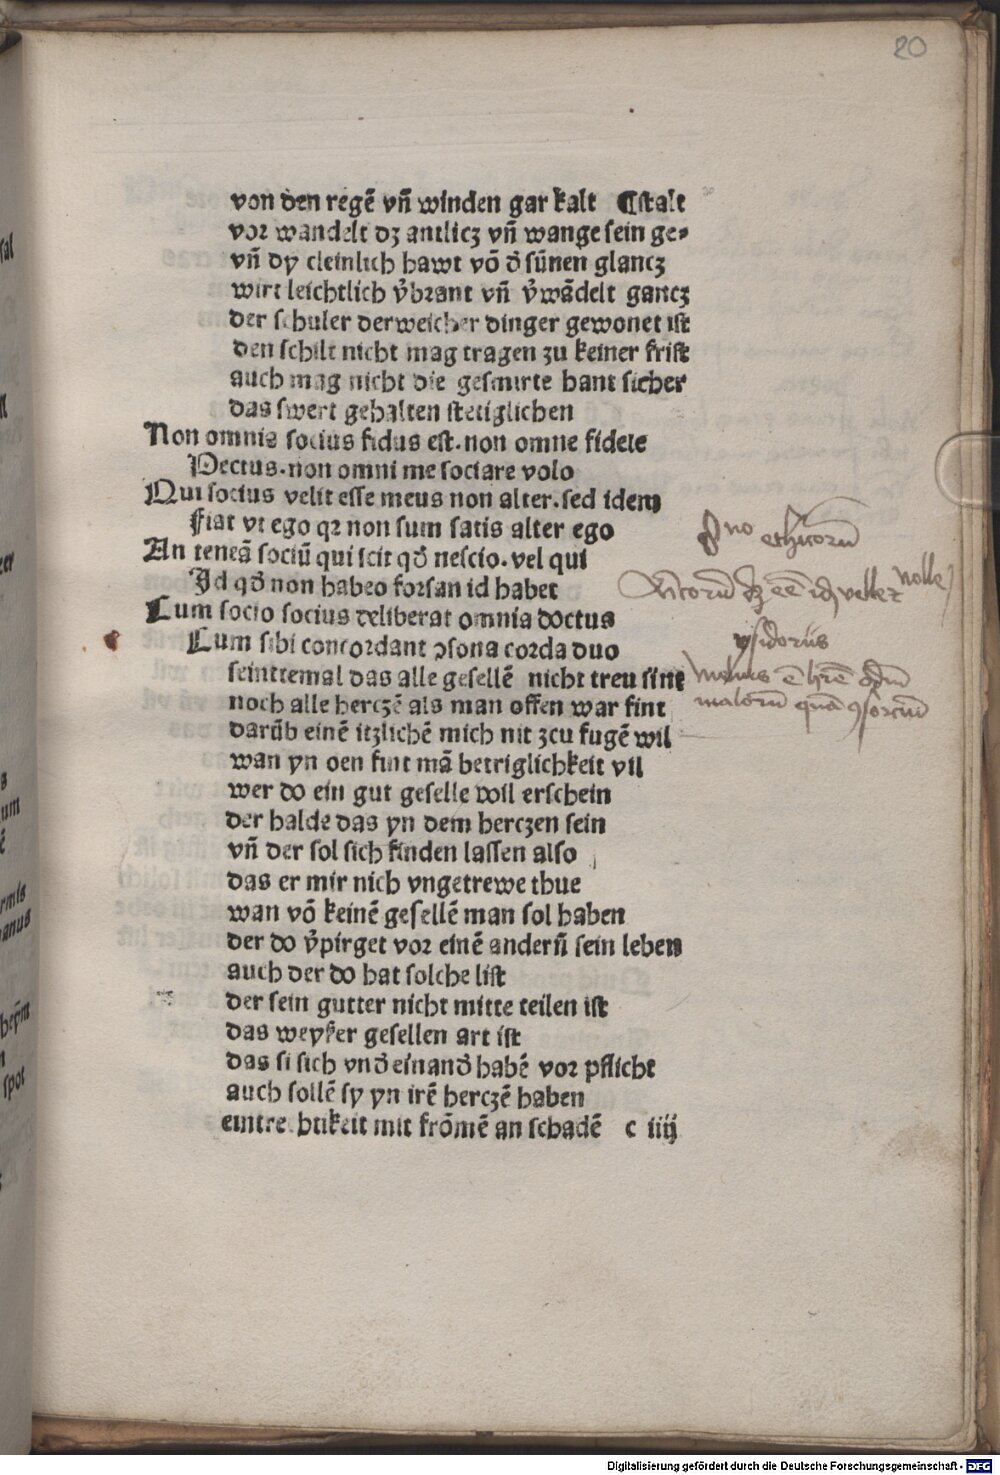 20
von den regē vñ winden gar kalt ¶stalt
vor wandelt dz antlicz vñ wange sein ge-
vñ dy cleinlich hawt vō d̄ sünen glancz
wirt leichtlich v̄brant vñ v̄wādelt gancz
der schuler derweicher dinger gewonet ist
den schilt nicht mag tragen zu keiner frist
auch mag nicht die gesmirte hant sicher
das swert gehalten stetiglichen
Non omnis socius fidus est. non omne fidele
Pectus. non omni me sociare volo
Qui socius velit esse meus non alter. sed idem
Fiat vt ego qꝛ non sum satis alter ego
An teneā sociū qui scit qd̄ nescio. vel qui
Id qd̄ non habeo forsan id habet
Cum socio socius deliberat omnia doctus
Cum sibi concordant ꝯsona corda duo
seinttemal das alle gesellē nicht treu sint
noch alle herczē als man offen war fint
darūb einē itzlichē mich nit zcu fugē wil
wan yn den fint mā betriglichkeit vil
wer do ein gut geselle wil erschein
der halde das yn dem herczen sein
vñ der sol sich finden lassen also
das er mir nich vngetrewe thue
wan vō keinē gesellē man sol haben
der do v̄pirget vor einē anderñ sein leben
auch der do hat solche list
der sein gutter nicht mitte teilen ist
das weyser gesellen art ist
das si sich vnd̄ einand̄ habē vor pflicht
auch sollē sy yn irē herczē haben
mit frōmē an schadē c iiij
ethicorū
velle nolle
ysidorus
malorū quā
Digitalisierung gefördert durch die Deutsche Forschungsgemeinschaft - DFG